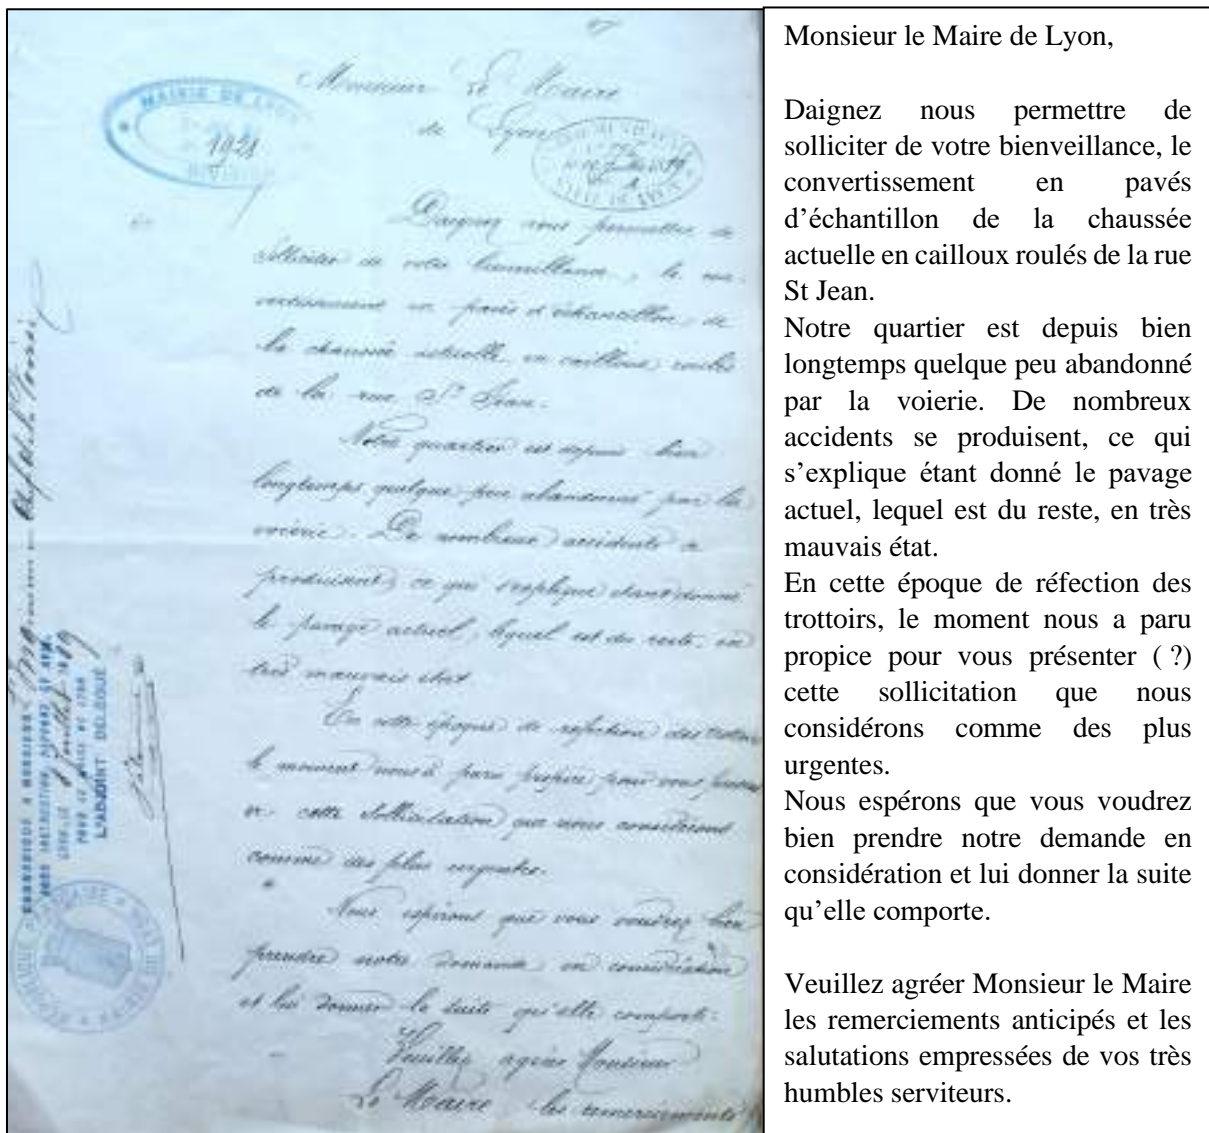 Monsieur Le Maire
de Lyon
MAIRIE DE LYON
1921
DIVISION
Daignez nous permettre de
solliciter de votre bienveillance, le con-
vertissement en pavés d'échantillon de
la chaussée actuelle en cailloux roulés
de la rue St Jean.
Notre quartier est depuis bien
longtemps quelque peu abandonné par la
voierie. De nombreux accidents se
produisent, ce qui s'explique étant donné
le pavage actuel, lequel est du reste, en
très mauvais état.
En cette époque de réfection des trottoirs
le moment nous a paru propice pour vous présen
er cette sollicitation que nous considérons
comme des plus urgentes.
Nous espérons que vous voudrez bien
prendre notre demande en considération
et lui donner la suite qu'elle comporte.
Veuillez agréer Monsieur
Le Maire les remerciements
L'ADJOINT DÉLÉGUÉ
Monsieur le Maire de Lyon,
Daignez nous permettre de
solliciter de votre bienveillance, le
convertissement en pavés
d'échantillon de la chaussée
actuelle en cailloux roulés de la rue
St Jean.
Notre quartier est depuis bien
longtemps quelque peu abandonné
par la voierie. De nombreux
accidents se produisent, ce qui
s'explique étant donné le pavage
actuel, lequel est du reste, en très
mauvais état.
En cette époque de réfection des
trottoirs, le moment nous a paru
propice pour vous présenter ( ?)
cette sollicitation que nous
considérons comme des plus
urgentes.
Nous espérons que vous voudrez
bien prendre notre demande en
considération et lui donner la suite
qu'elle comporte.
Veuillez agréer Monsieur le Maire
les remerciements anticipés et les
salutations empressées de vos très
humbles serviteurs.